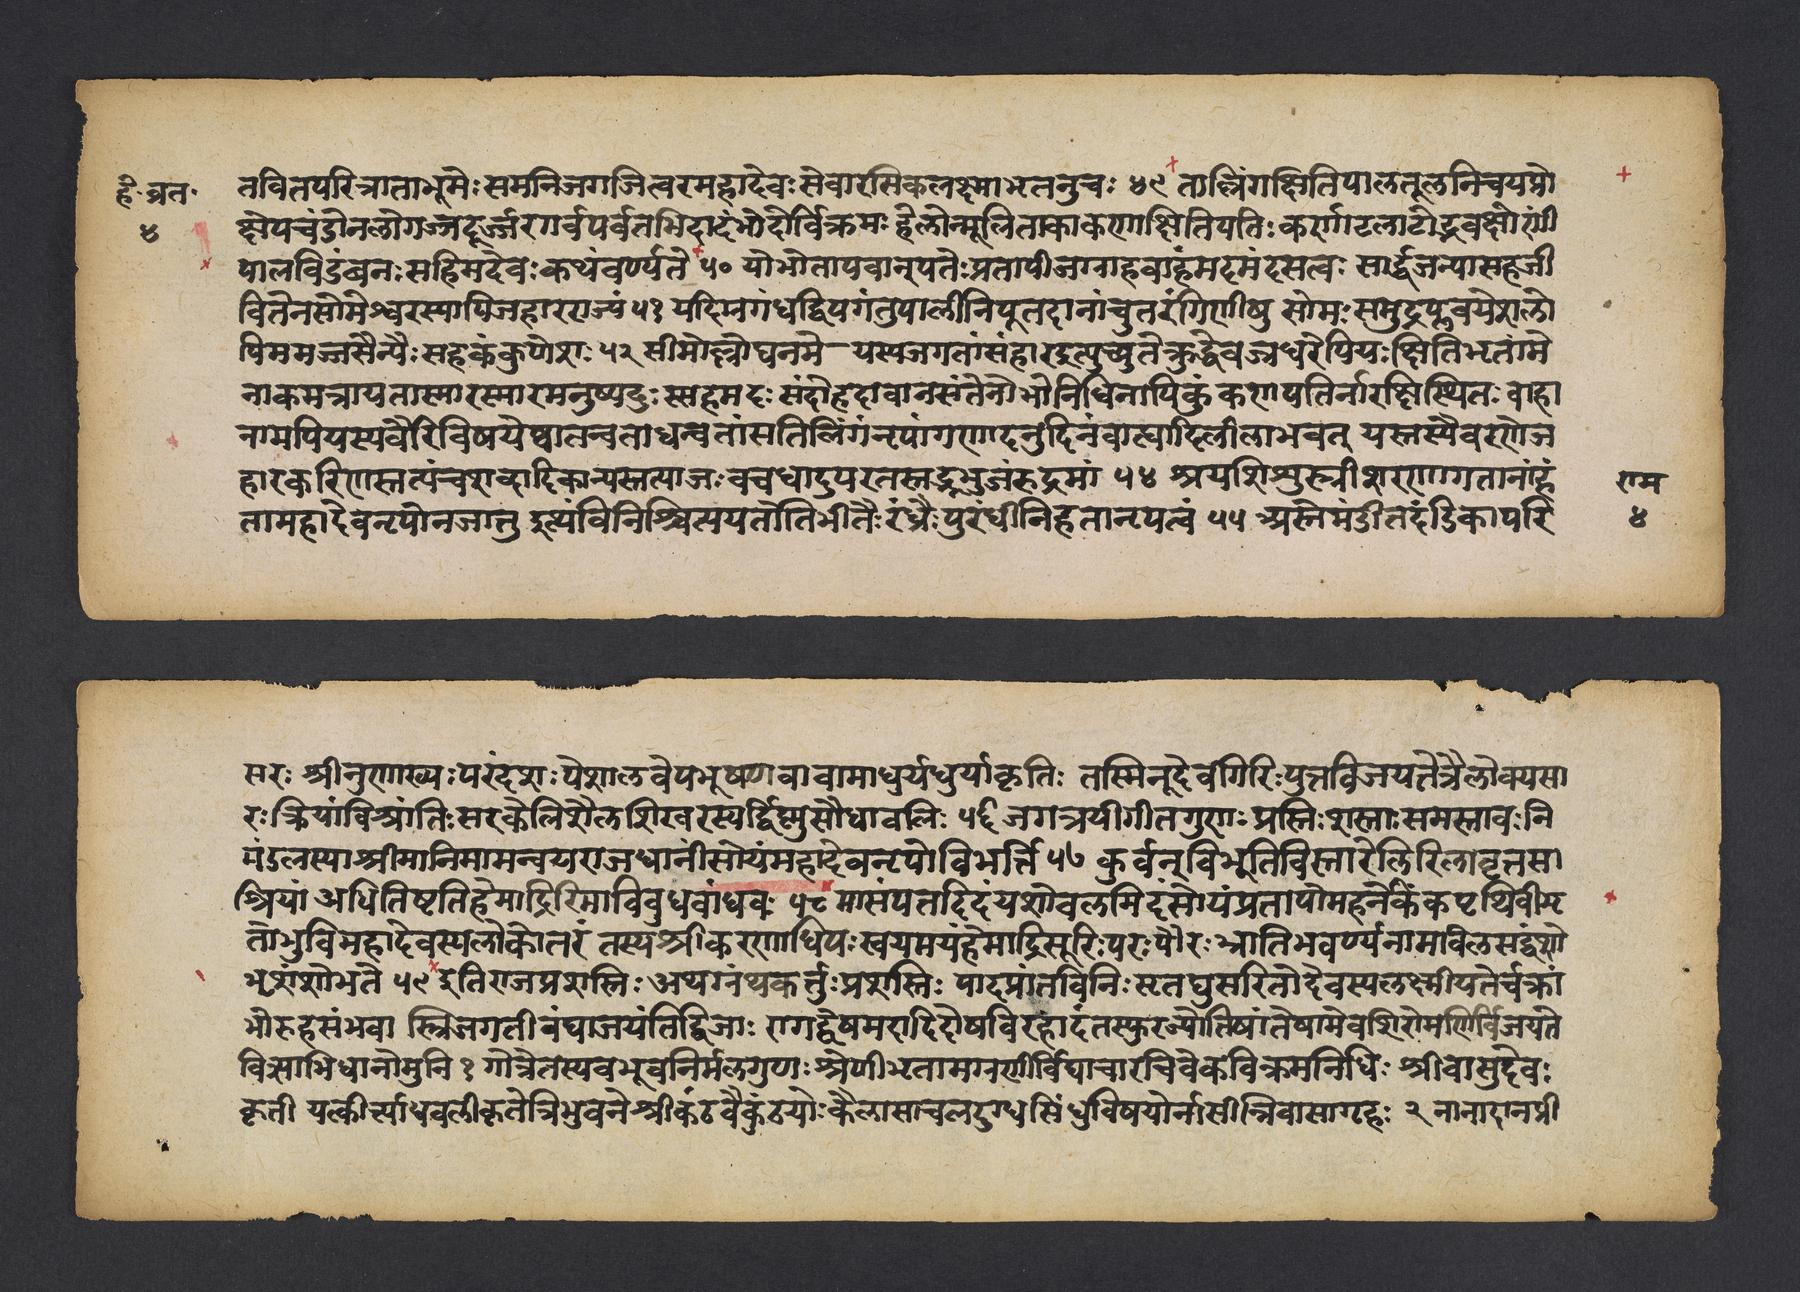 हे. व्रत.
४
तवितपरित्राताभूमेः समनिजगजित्वरमहादेवः सेवारसिकलक्ष्माभतनुचः ४९ तालिंगक्षितिपालतूलनिचयप्रो
क्षेपचंडोनलोगर्ज्जद्गूर्ज्जरगर्वपर्वतभिदादंभोदोर्विक्रमः हेलोन्मूलिताकाकरणाक्षितिपतिः कर्णाटलाटोद्भवक्षोणी
पालविडंबनः सहिमदेवः कथंवर्ण्यते ५० योभोतापवानृपतेः प्रतापीजग्राहवाहंमदमंदसत्वः सार्द्धंजन्यासहजी
वितेनसोमेश्वरस्यापिजहारराज्यं ५१ यदिग्नगंधद्विपगंतुपालीनिपूतदानांचुतरंगिणीषु सोमः समुद्रप्लवयेशलो
पिममज्जसैन्यैः सहकंकुणेशः ५२ सीमोल्लोघनमे यस्पजगतांसंहारदुत्पुच्युतेक्रुद्धेवज्रधरेपियः क्षितिभतांमे
नाकमत्रायतास्मारस्मारमनुष्पदुः स्सहमदः संदोहदावानसंतेनोभोनिधिनापिकुंकणपतिर्नारक्षिस्थितः वाहा
नामपियस्यवैरिविषयेष्वातन्वतोधन्वतांसतिलिंगंनृपांगणादनुदिनंवात्यादिलीलाभवत् यस्तस्यैवरणेज
हारकरिणस्तत्पंचशब्दादिकान्यस्तत्याजःवचधादुपरतस्तद्भूभुजंरुद्रमां ५४ श्रयशिशुस्त्रीशरणागतानांहं
तामहादेवनृपोनजातु इत्थंविनिश्चित्ययतोतिभीतैः रंध्रैः पुरंध्रीनिहतानृपत्वं ५५ अस्तिमंडीतदंडिकापरि
राम
४
सरः श्रीनुणाख्यः परंदेशः पेशालवेपभूषणवावामाधुर्यधुर्याकृतिः तस्मिनूदेवगिरिः पुत्रविजयतेत्रैलोक्यसा
रः क्रियांविश्रांतिः सरकेलिशैलशिखरस्पर्द्धिष्णुसौधावलिः ५६ जगत्रयीगीतगुणः प्रस्तिः शस्ताः समस्तावः नि
मंडलस्या श्रीमानिमामन्वयराजधानींसोयंमहादेवनृपोविभर्त्ति ५७ कुर्वनूविभूतिविस्तारेलिरिलावृत्तसा
श्रिया अधितिष्टतिहेमाद्रिरिमाविबुधबांधवः ५८ मासंपतदिदंयशोबलमिदंसोयंप्रतापोमहनैकिंकपृथिवीम
तोभुविमहादेवस्यलोकोतरं तस्यश्रीकरणाधिपः स्वयमयंहेमाद्रिसूरिः परः पौरः भातिभवर्ण्यंनामविलसद्वंशो
भृशंशोभते ५९ इतिराजप्रशस्तिः अथग्रंथकर्त्तुः प्रशस्तिः पादप्रांतविनिःसृतघुसरितोदेवस्यलक्ष्मीपतेर्चक्रां
भोरुहसंभवा स्त्रिजगतीवंघाजयंतिद्विजाः रागद्वेषमदादिदोषविरहादंतस्फुरज्योतिषांतेषामेवशिरोमणिर्विजयते
वित्साभिधानोमुनि १ गोत्रेतस्यबभूवनिर्मलगुणः श्रेणीभृतामग्रणीर्विघाचारविवेकविक्रमनिधिः श्रीवासुदेवः
कृती यत्कीर्त्त्याधवलीकृतेत्रिभुवनेश्रीकंठवैकुंठयोः कैलासाचलदुग्धसिंधुविषयोर्नासीन्निवासाग्रहः २ नानादानप्री